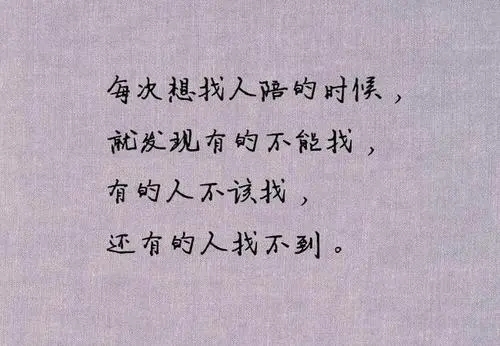 每次想找人陪的时候，
就发现有的不能找，
有的人不该找，
还有的人找不到。